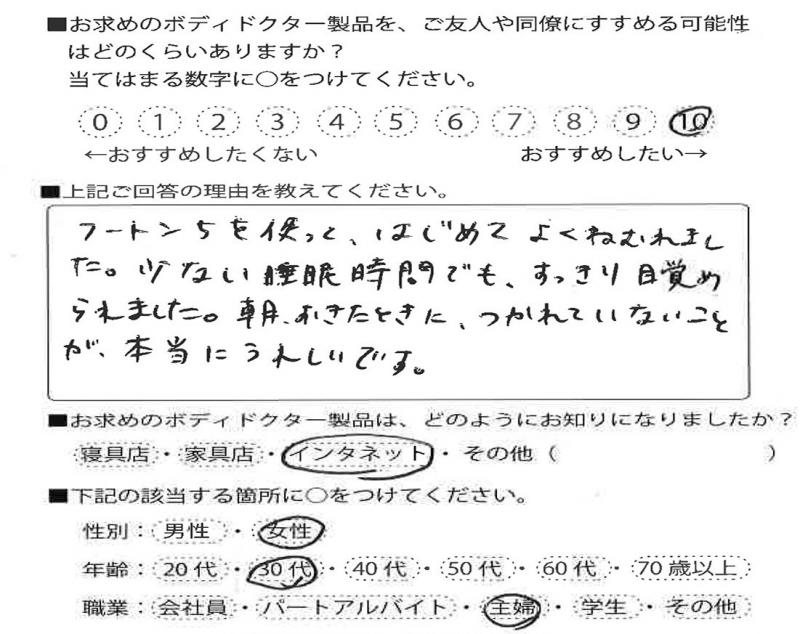 ■お求めのボディドクター製品を、ご友人や同僚にすすめる可能性
はどのくらいありますか？
当てはまる数字に○をつけてください。
0 1 2 3 4 5 6 7 8 9 10
←おすすめしたくない おすすめしたい→
■上記ご回答の理由を教えてください。
フートン5を使って、はじめてよくねむれまし
た。少ない睡眠時間でも、すっきり目覚め
られました。朝、おきたときに、つかれていないこと
が、本当にうれしいです。
■お求めのボディドクター製品は、どのようにお知りになりましたか？
寝具店・家具店・インタネット・その他（ ）
■下記の該当する箇所に○をつけてください。
性別：男性・女性
年齢：20代・30代・40代・50代・60代・70歳以上
職業：会社員・パートアルバイト・主婦・学生・その他